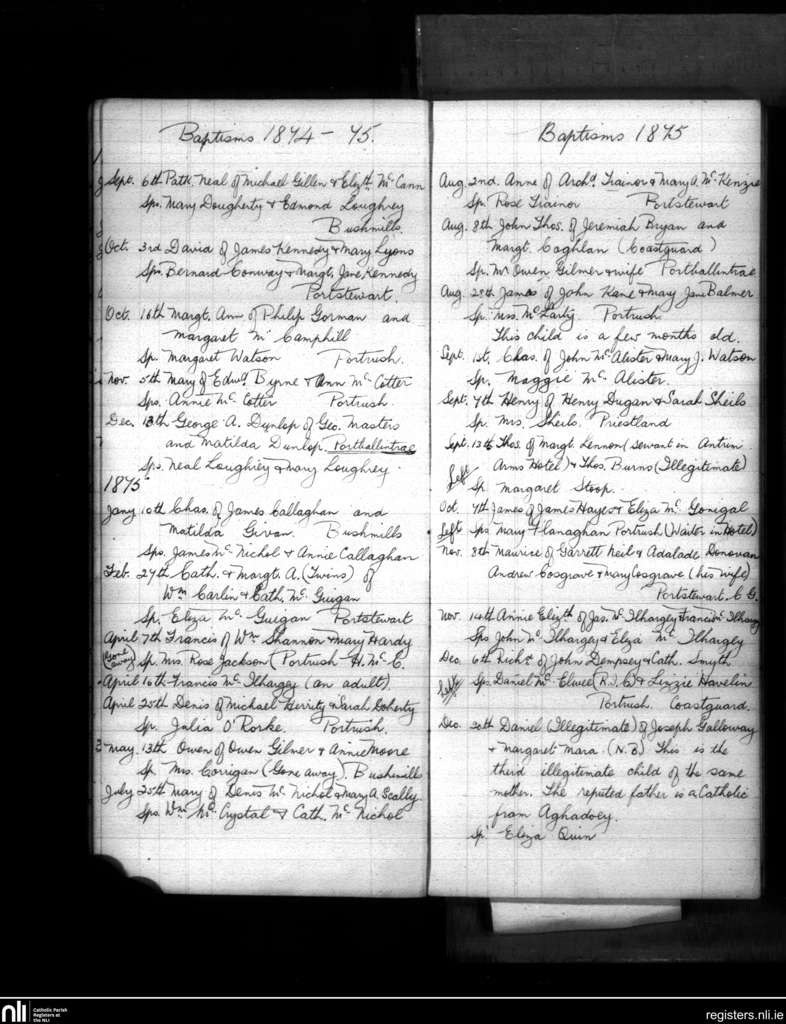 Baptisms 1874 - 75.
Sept. 6th Patk. Neal of Michael Gillen & Elizth. Mc Cann
Sps. Mary Dougherty & Edmond Loughrey
Bushmills.
Oct. 3rd David of James Kennedy & Mary Lyons
Sps. Bernard Conway & Margt. Jane Kennedy
Portstewart.
Oct. 16th Margt. Ann of Philip Gorman and
Margaret Mc Camphill
Sp. Margaret Watson Portrush.
Nov. 5th Mary of Edwd. Byrne & Ann Mc Cotter
Sps. Annie Mc Cotter Portrush.
Dec. 13th George A. Dunlop of Geo. Masters
and Matilda Dunlop. Portballintrae
Sps. Neal Loughrey & Mary Loughrey.
1875
Jany 10th Chas. of James Callaghan and
Matilda Givan. Bushmills
Sps. James Mc Nichol & Annie Callaghan
Feb. 27th Cath. & Margt. A. (Twins) of
Wm Carlin & Cath. Mc Guigan
Sp. Eliza Mc Guigan Portstewart
April 7th Francis of Wm Shannon & Mary Hardy
(Gone away) Sp. Mrs. Rose Jackson (Portrush H. Mc C.
April 16th Francis Mc Ilhargey (an adult)
April 25th Denis of Michael Herrity & Sarah Doherty
Sp. Julia O'Rorke. Portrush.
May. 13th Owen of Owen Gilmer & Annie Moore
Sp. Mrs. Corrigan (Gone away). Bushmills
July 25th Mary of Denis Mc Nichol & Mary A. Scally
Sps. Wm Mc Crystal & Cath. Mc Nichol
Baptisms 1875
Aug. 2nd. Anne of Archd. Trainor & Mary A. Mc Kenzie
Sp. Rose Trainor Portstewart
Aug. 8th John Thos. of Jeremiah Bryan and
Margt. Coghlan (Coastguard)
Sp. Mr Owen Gilmer & wife Portballintrae
Aug. 28th James of John Kane & Mary Jane Balmer
Sp. Mrs. Mc Larty Portrush
This child is a few months old.
Sept. 1st. Chas. of John Mc Alister & Mary J. Watson
Sp. Maggie Mc Alister.
Sept. 7th Henry of Henry Dugan & Sarah Sheils
Sp. Mrs. Sheils. Priestland
Sept. 13th Thos. of Margt. Lennon (servant in Antrim
Arms Hotel) & Thos. Burns (Illegitimate)
Left Sp. Margaret Stoop.
Oct. 7th James of James Hayes & Eliza Mc Gonigal
Left Sps Mary Flanaghan Portrush (Waiter in Hotel)
Nov. 8th Maurice of Garrett Neil & Adalade Donovan
Andrew Cosgrave & Mary Cosgrave (his wife)
Portstewart. C. G.
Nov. 14th Annie Elizth of Jas. Mc Ilhargey & Mc Ilhargey
Sps John Mc Ilhargey & Eliza Mc Ilhargey
Dec. 6th of John Dempsey & Cath. Smyth
Left Sps. Daniel Mc Elwee (R.I.C) & Lizzie Havelin
Portrush. Coastguard.
Dec. 20th Daniel (Illegitimate) of Joseph Galloway
& Margaret Mara. (N.B) This is the
third illegitimate child of the same
mother. The reputed father is a Catholic
from Aghadoey.
Sp. Eliza Quin
nli
Catholic Parish
Registers at
the NLI
registers.nli.ie